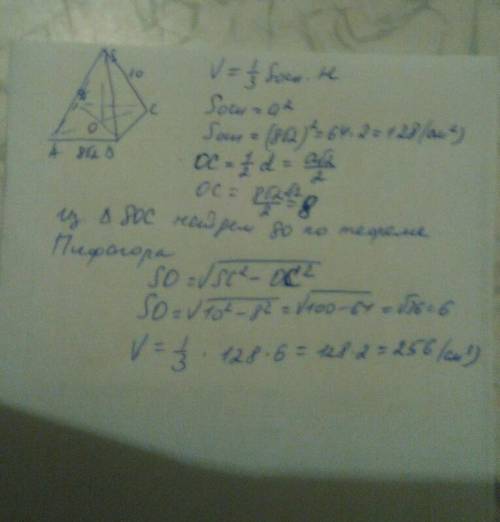 S
10
C
O
A 8√2 B
V = 1/3 Sосн · H
Sосн = a²
Sосн = (8√2)² = 64 · 2 = 128 (см²)
OC = 1/2 d = a√2/2
OC = 8√2·√2/2 = 8
Из Δ SOC найдем SO по теореме
Пифагора
SO = √(SC² − OC²)
SO = √(10² − 8²) = √(100 − 64) = √36 = 6
V = 1/3 · 128 · 6 = 128 · 2 = 256 (см³)